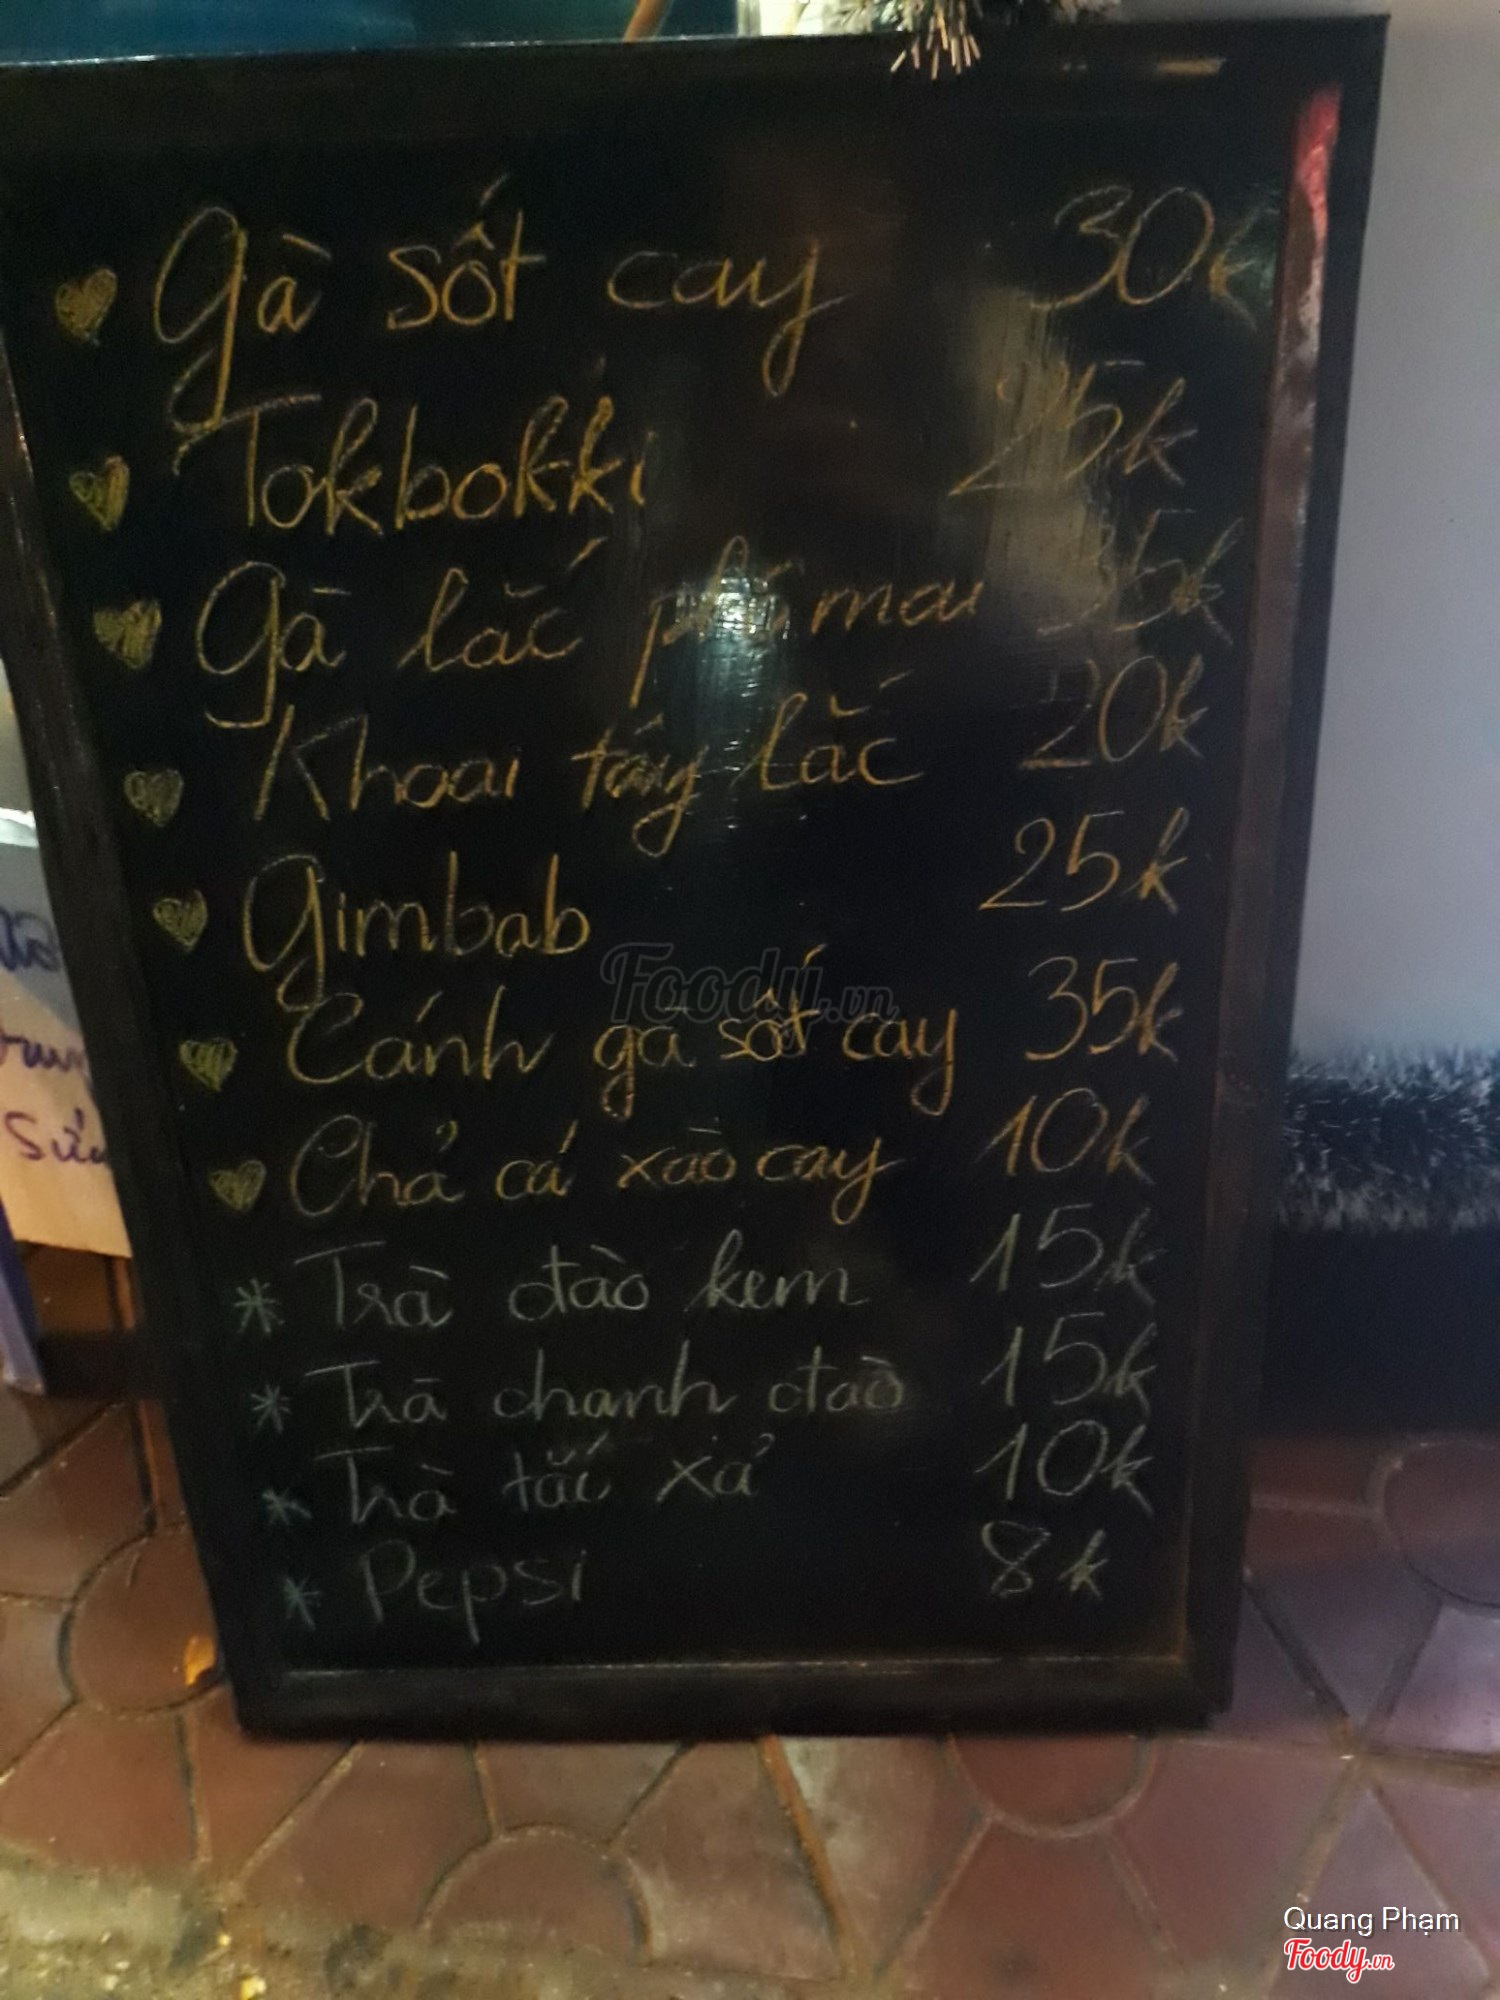 Gà sốt cay 30k
Tokbokki 25k
Gà lắc phô mai 35k
Khoai tây lắc 20k
Gimbab 25k
Cánh gà sốt cay 35k
Chả cá xào cay 10k
* Trà đào kem 15k
* Trà chanh đào 15k
* Trà tắc xả 10k
* Pepsi 8k
Foody.vn
Quang Phạm
Foody.vn